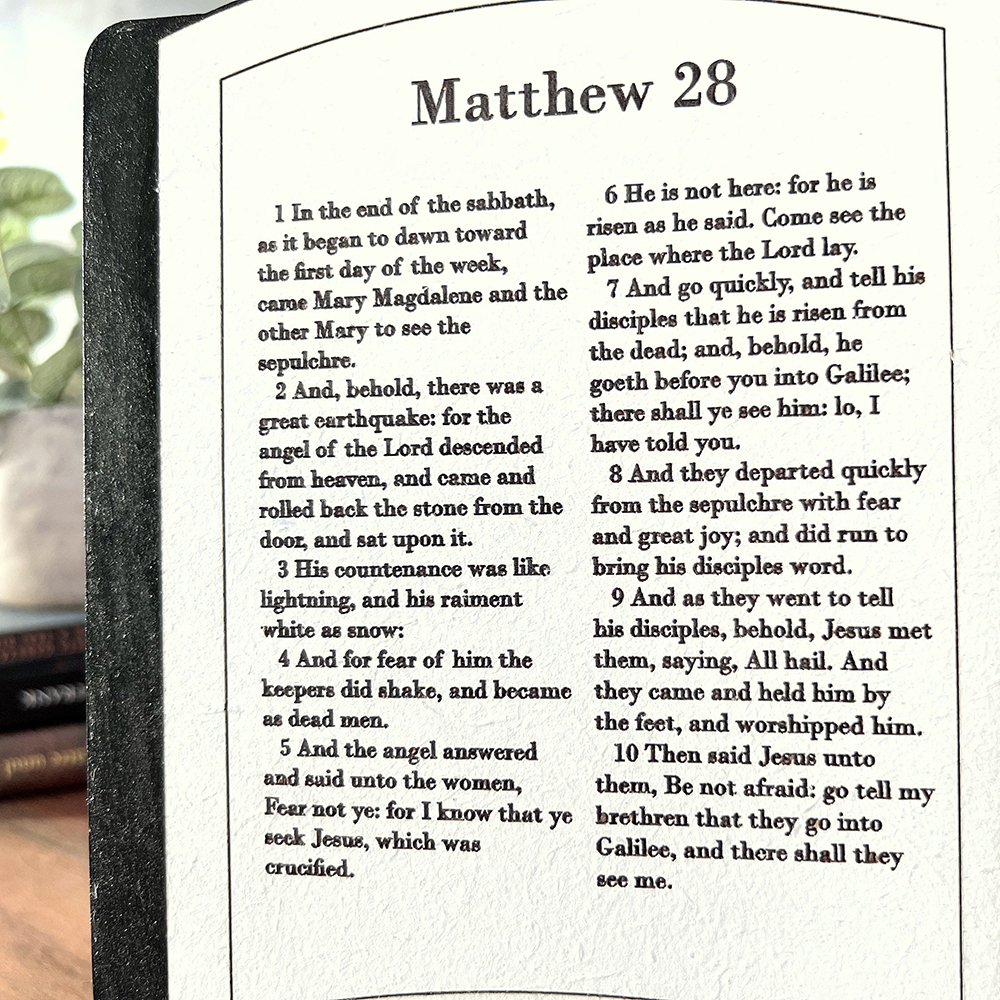 Matthew 28
1 In the end of the sabbath,
as it began to dawn toward
the first day of the week,
came Mary Magdalene and the
other Mary to see the
sepulchre.
2 And, behold, there was a
great earthquake: for the
angel of the Lord descended
from heaven, and came and
rolled back the stone from the
door, and sat upon it.
3 His countenance was like
lightning, and his raiment
white as snow:
4 And for fear of him the
keepers did shake, and became
as dead men.
5 And the angel answered
and said unto the women,
Fear not ye: for I know that ye
seek Jesus, which was
crucified.
6 He is not here: for he is
risen as he said. Come see the
place where the Lord lay.
7 And go quickly, and tell his
disciples that he is risen from
the dead; and, behold, he
goeth before you into Galilee;
there shall ye see him: lo, I
have told you.
8 And they departed quickly
from the sepulchre with fear
and great joy; and did run to
bring his disciples word.
9 And as they went to tell
his disciples, behold, Jesus met
them, saying, All hail. And
they came and held him by
the feet, and worshipped him.
10 Then said Jesus unto
them, Be not afraid: go tell my
brethren that they go into
Galilee, and there shall they
see me.